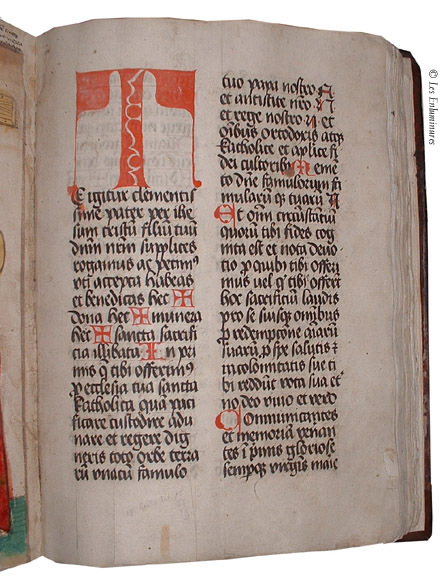 T
E igitur clementis
sime pater per ihe
sum cristū filiū tuū
dnm nrm supplices
rogamus ac petimꝰ
uti accepta habeas
et benedicas hec ✠
dona hec ✠ munera
hec ✠ sancta sacrifi
cia illibata In pri
mis q̄ tibi offerimꝰ
p ecclesia tua sancta
katholica quā paci
ficare custodire adu
nare et regere dig
neris toto orbe terra
rū unacū famulo
tuo papa nostro N
et antistite nro N
et rege nostro N et
oībus ortodoxis atqꝫ
katholice et aplice fi
dei cultoribꝫ Me
to dne famulorum fa
mularū qꝫ tuarū N
Et oīm circūstātiū
quorū tibi fides cog
nita est et nota devo
tio p quibꝫ tibi offeri
mus uel q̄ tibi offert
hoc sacrificiū laudis
pro se suisqꝫ omibus
p redemptione aīarū
suarū p spe salutis et
incolomitatis sue ti
bi reddūt vota sua et
no deo vivo et vero
Communicantes
et memoriā veneran
tes ī primis gloriose
sempqꝫ virgīs maie
© Les Enluminures